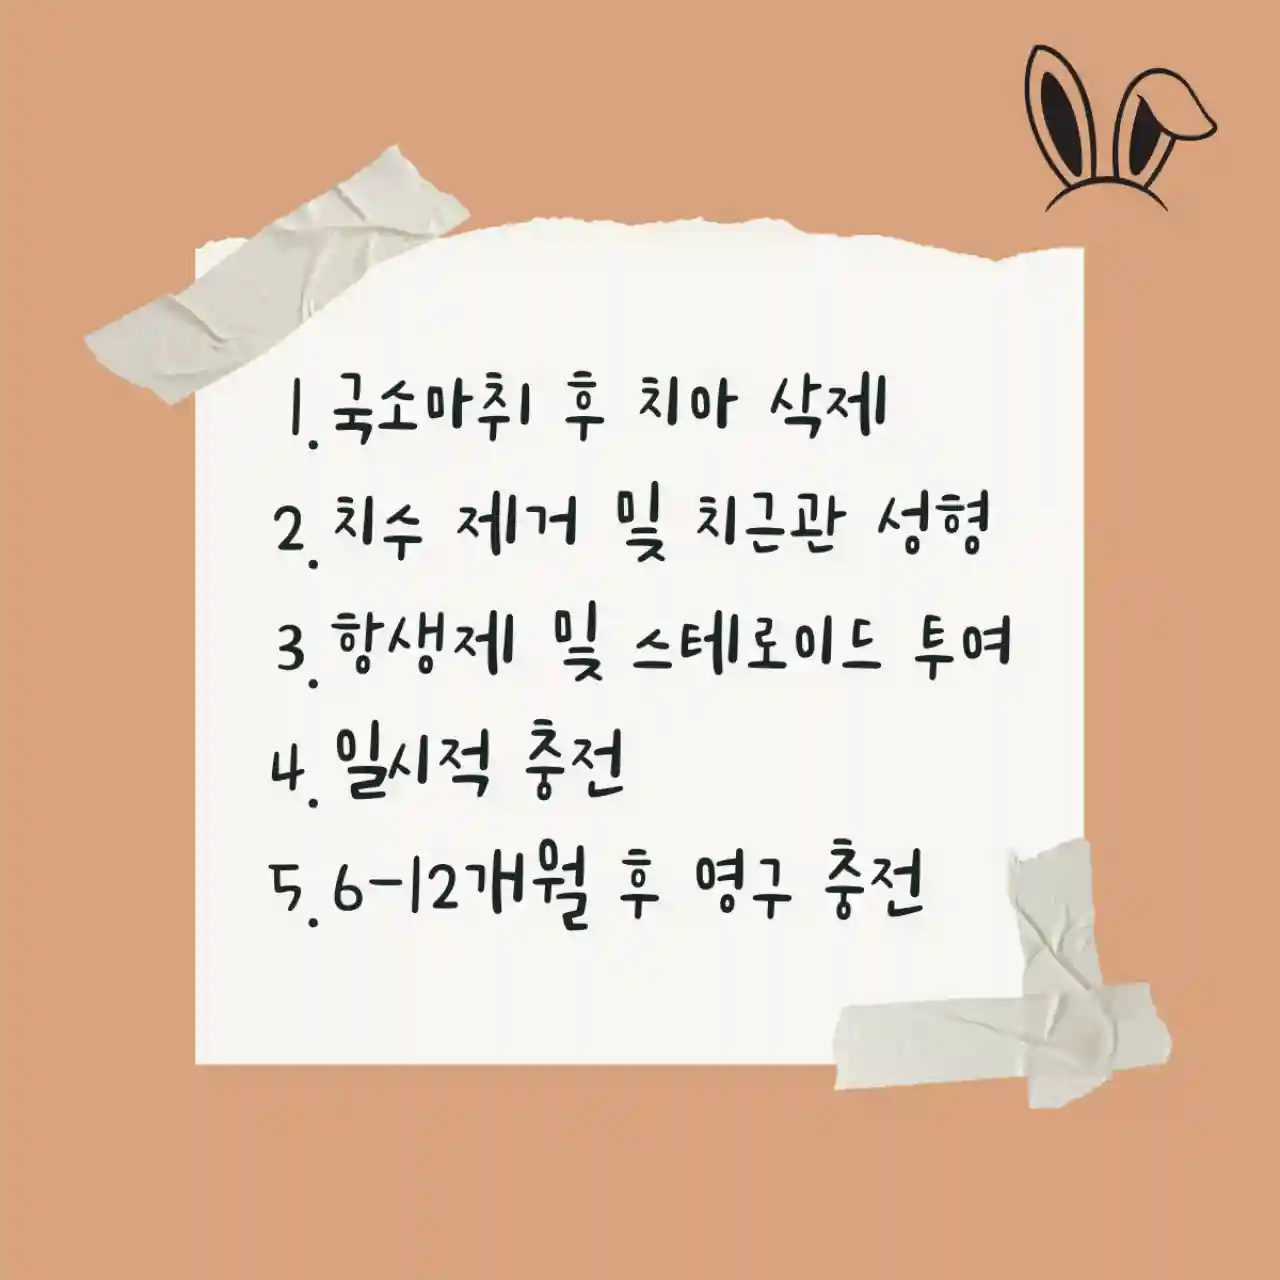 1. 국소마취 후 치아 삭제
2. 치수 제거 및 치근관 성형
3. 항생제 및 스테로이드 투여
4. 일시적 충전
5. 6-12개월 후 영구 충전